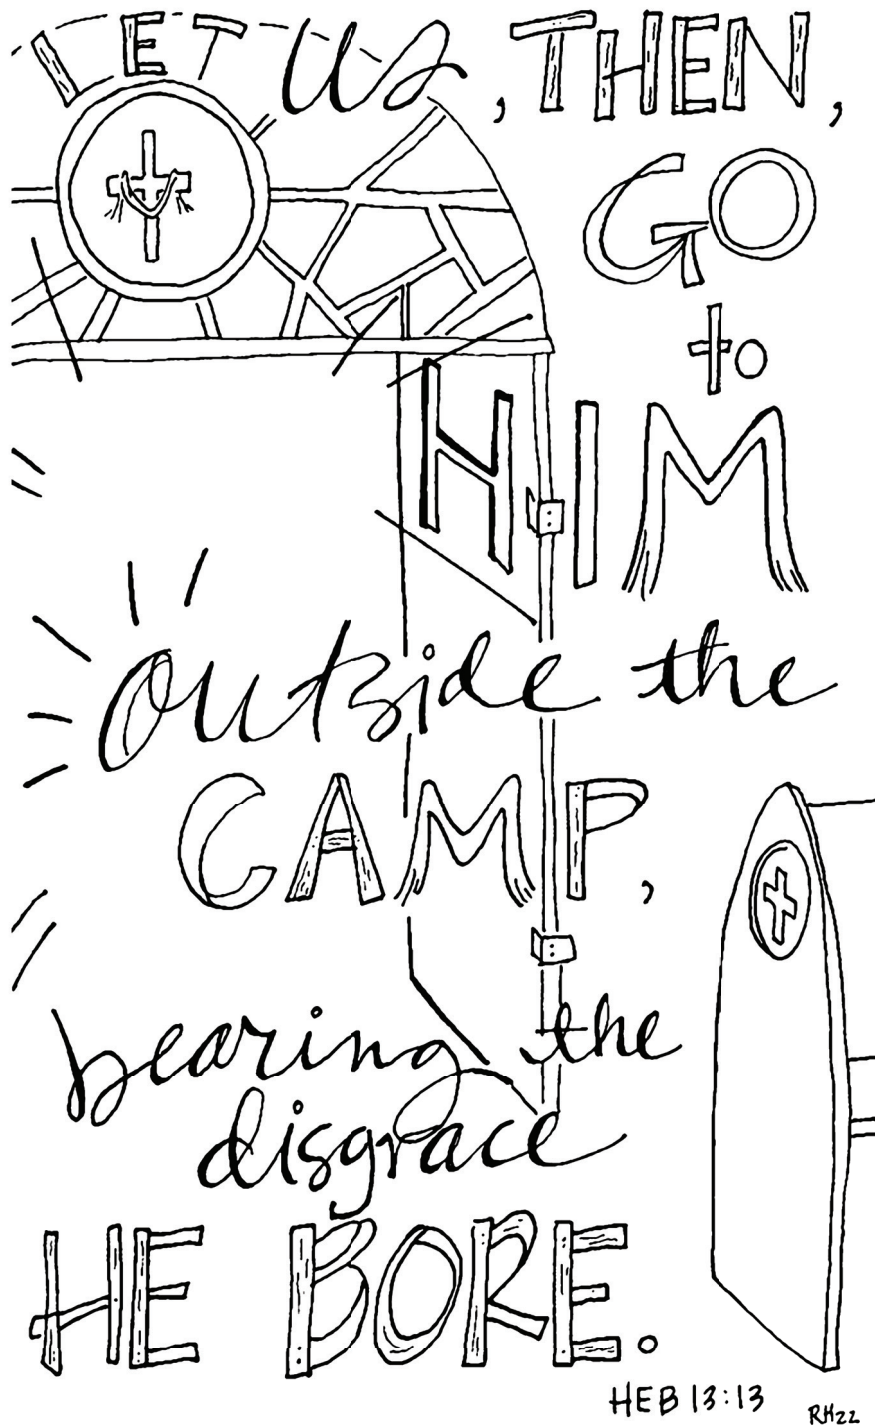 LET us, THEN,
GO
to
HIM
outside the
CAMP,
bearing the
disgrace
HE BORE.
HEB 13:13
RH22